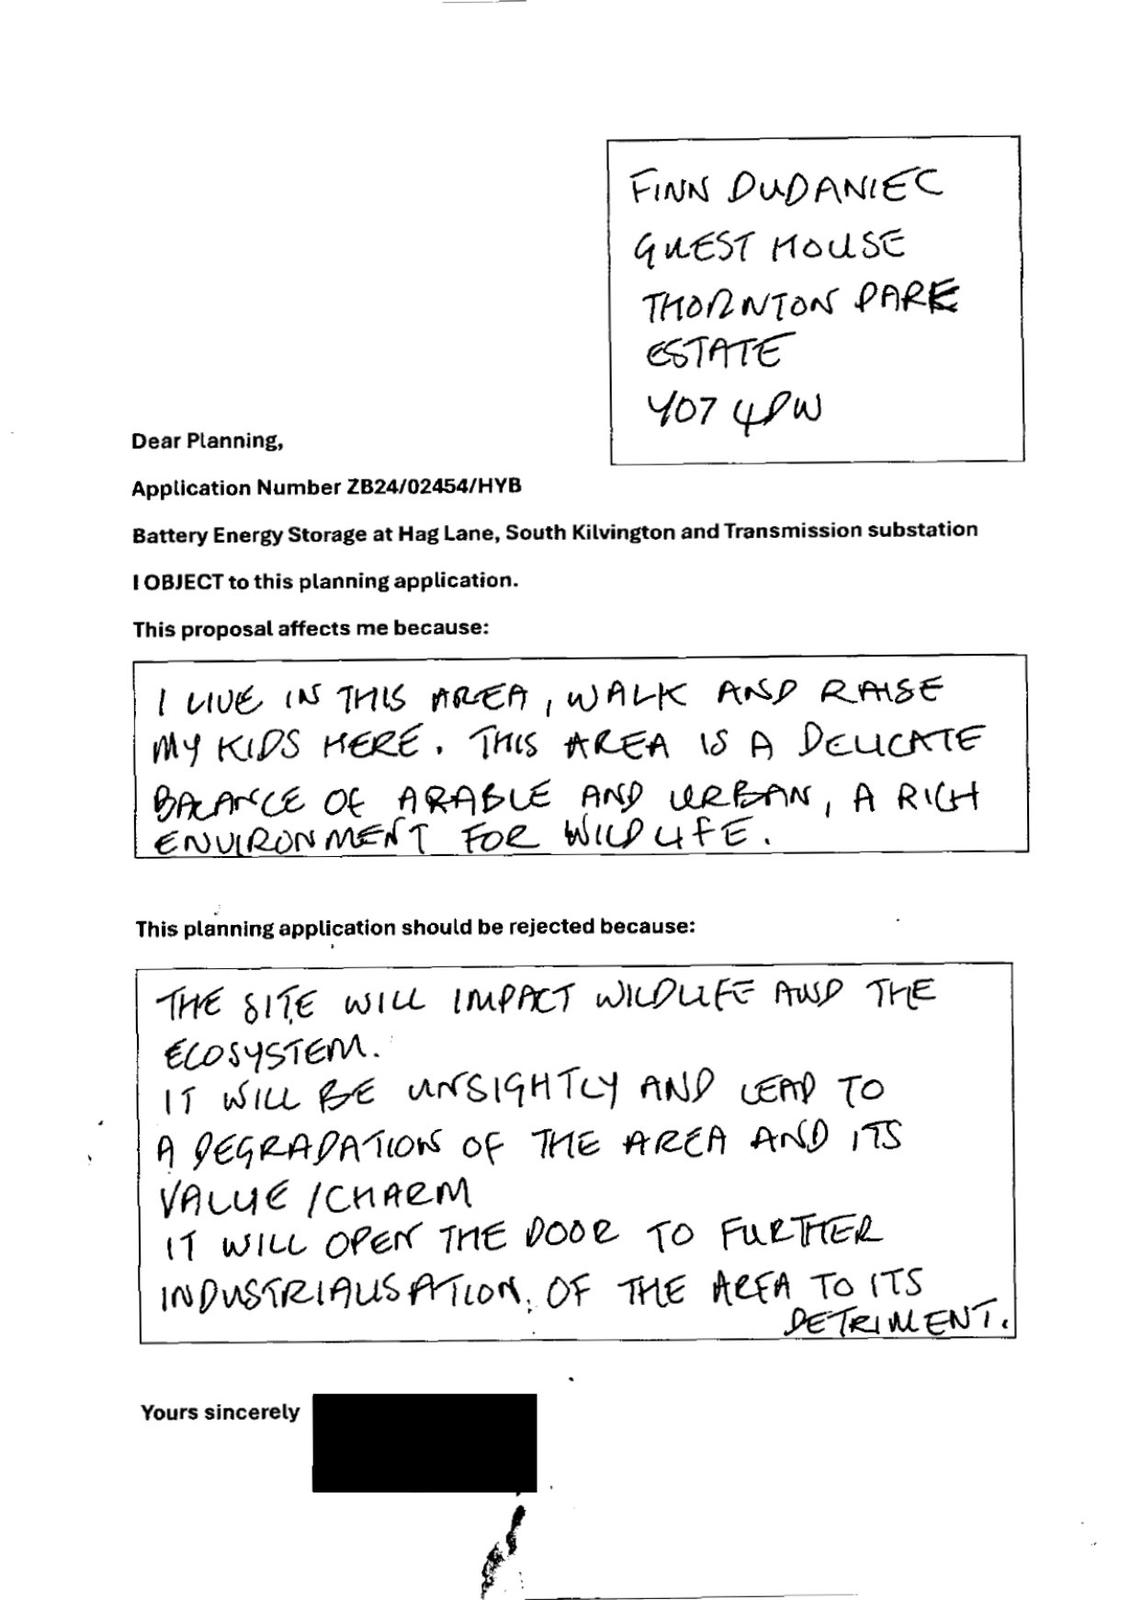 FINN DUDANIEC
GUEST HOUSE
THORNTON PARK
ESTATE
YO7 4DW
Dear Planning,
Application Number ZB24/02454/HYB
Battery Energy Storage at Hag Lane, South Kilvington and Transmission substation
I OBJECT to this planning application.
This proposal affects me because:
I LIVE IN THIS AREA, WALK AND RAISE
MY KIDS HERE. THIS AREA IS A DELICATE
BALANCE OF ARABLE AND URBAN, A RICH
ENVIRONMENT FOR WILDLIFE.
This planning application should be rejected because:
THE SITE WILL IMPACT WILDLIFE AND THE
ECOSYSTEM.
IT WILL BE UNSIGHTLY AND LEAD TO
A DEGRADATION OF THE AREA AND ITS
VALUE/CHARM
IT WILL OPEN THE DOOR TO FURTHER
INDUSTRIALISATION OF THE AREA TO ITS
DETRIMENT.
Yours sincerely